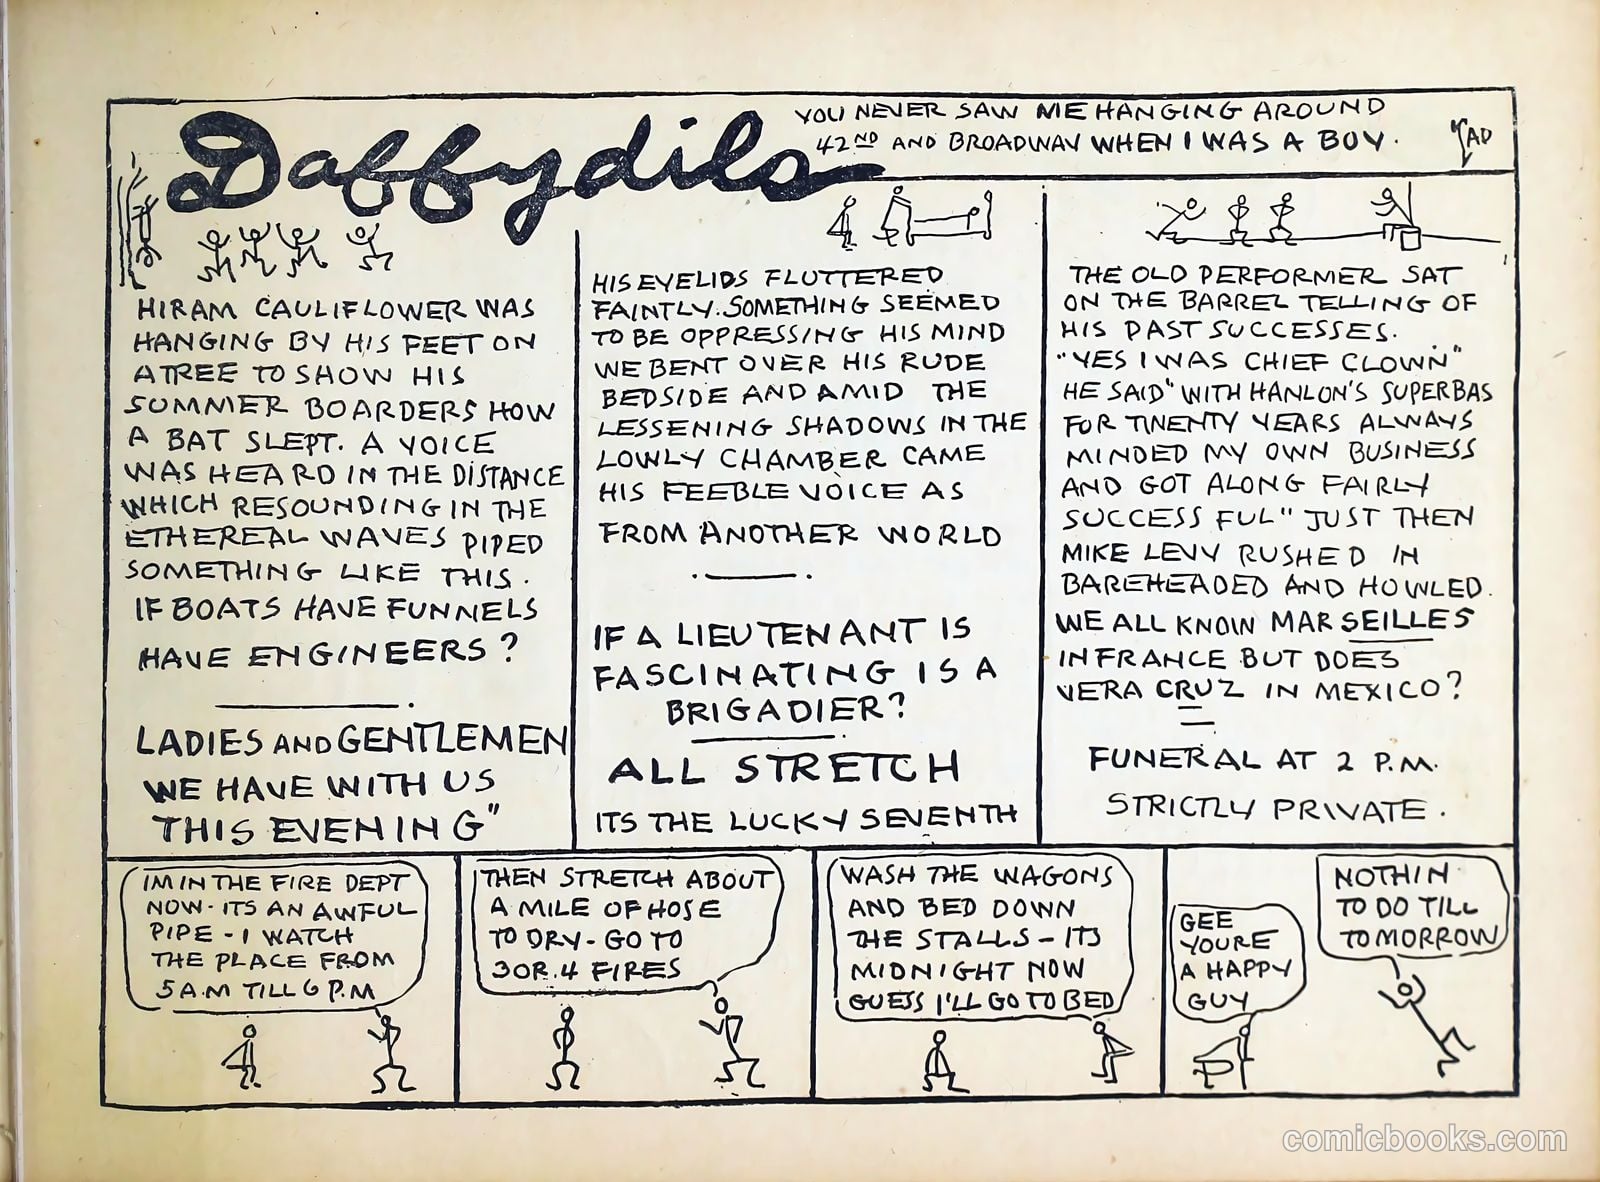 Daffydils
YOU NEVER SAW ME HANGING AROUND
42ND AND BROADWAY WHEN I WAS A BOY.
TAD
HIRAM CAULIFLOWER WAS
HANGING BY HIS FEET ON
A TREE TO SHOW HIS
SUMMER BOARDERS HOW
A BAT SLEPT. A VOICE
WAS HEARD IN THE DISTANCE
WHICH RESOUNDING IN THE
ETHEREAL WAVES PIPED
SOMETHING LIKE THIS.
IF BOATS HAVE FUNNELS
HAVE ENGINEERS?
LADIES AND GENTLEMEN
WE HAVE WITH US
THIS EVENING"
HIS EYELIDS FLUTTERED
FAINTLY. SOMETHING SEEMED
TO BE OPPRESSING HIS MIND
WE BENT OVER HIS RUDE
BEDSIDE AND AMID THE
LESSENING SHADOWS IN THE
LOWLY CHAMBER CAME
HIS FEEBLE VOICE AS
FROM ANOTHER WORLD
IF A LIEUTENANT IS
FASCINATING IS A
BRIGADIER?
ALL STRETCH
ITS THE LUCKY SEVENTH
THE OLD PERFORMER SAT
ON THE BARREL TELLING OF
HIS PAST SUCCESSES.
"YES I WAS CHIEF CLOWN"
HE SAID "WITH HANLON'S SUPERBAS
FOR TWENTY YEARS ALWAYS
MINDED MY OWN BUSINESS
AND GOT ALONG FAIRLY
SUCCESSFUL" JUST THEN
MIKE LEVY RUSHED IN
BAREHEADED AND HOWLED.
WE ALL KNOW MARSEILLES
IN FRANCE BUT DOES
VERA CRUZ IN MEXICO?
FUNERAL AT 2 P.M.
STRICTLY PRIVATE.
IM IN THE FIRE DEPT
NOW - ITS AN AWFUL
PIPE - I WATCH
THE PLACE FROM
5 A.M TILL 6 P.M
THEN STRETCH ABOUT
A MILE OF HOSE
TO DRY - GO TO
3 OR 4 FIRES
WASH THE WAGONS
AND BED DOWN
THE STALLS - ITS
MIDNIGHT NOW
GUESS I'LL GO TO BED
GEE
YOURE
A HAPPY
GUY
NOTHIN
TO DO TILL
TOMORROW
comicbooks.com